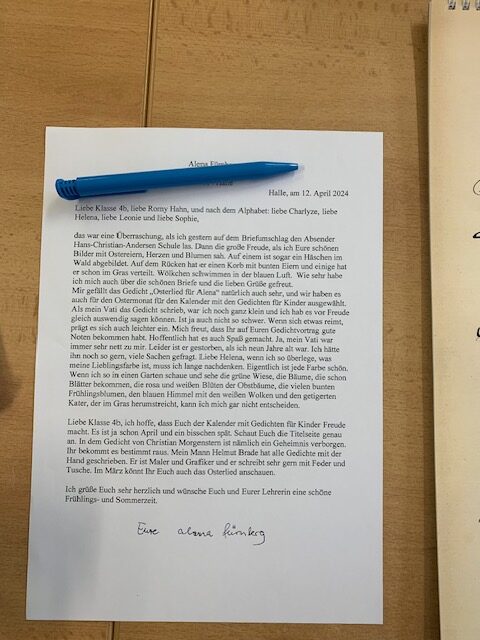 Alena Fürnberg
Halle, am 12. April 2024
Liebe Klasse 4b, liebe Romy Hahn, und nach dem Alphabet: liebe Charlyze, liebe
Helena, liebe Leonie und liebe Sophie,
das war eine Überraschung, als ich gestern auf dem Briefumschlag den Absender
Hans-Christian-Andersen Schule las. Dann die große Freude, als ich Eure schönen
Bilder mit Ostereiern, Herzen und Blumen sah. Auf einem ist sogar ein Häschen im
Wald abgebildet. Auf dem Rücken hat er einen Korb mit bunten Eiern und einige hat
er schon im Gras verteilt. Wölkchen schwimmen in der blauen Luft. Wie sehr habe
ich mich auch über die schönen Briefe und die lieben Grüße gefreut.
Mir gefällt das Gedicht „Osterlied für Alena“ natürlich auch sehr, und wir haben es
auch für den Ostermonat für den Kalender mit den Gedichten für Kinder ausgewählt.
Als mein Vati das Gedicht schrieb, war ich noch ganz klein und ich hab es vor Freude
gleich auswendig sagen können. Ist ja auch nicht so schwer. Wenn sich etwas reimt,
prägt es sich auch leichter ein. Mich freut, dass Ihr auf Euren Gedichtvortrag gute
Noten bekommen habt. Hoffentlich hat es auch Spaß gemacht. Ja, mein Vati war
immer sehr nett zu mir. Leider ist er gestorben, als ich neun Jahre alt war. Ich hätte
ihn noch so gern, viele Sachen gefragt. Liebe Helena, wenn ich so überlege, was
meine Lieblingsfarbe ist, muss ich lange nachdenken. Eigentlich ist jede Farbe schön.
Wenn ich so in einen Garten schaue und sehe die grüne Wiese, die Bäume, die schon
Blätter bekommen, die rosa und weißen Blüten der Obstbäume, die vielen bunten
Frühlingsblumen, den blauen Himmel mit den weißen Wolken und den getigerten
Kater, der im Gras herumstreicht, kann ich mich gar nicht entscheiden.
Liebe Klasse 4b, ich hoffe, dass Euch der Kalender mit Gedichten für Kinder Freude
macht. Es ist ja schon April und ein bisschen spät. Schaut Euch die Titelseite genau
an. In dem Gedicht von Christian Morgenstern ist nämlich ein Geheimnis verborgen.
Ihr bekommt es bestimmt raus. Mein Mann Helmut Brade hat alle Gedichte mit der
Hand geschrieben. Er ist Maler und Grafiker und er schreibt sehr gern mit Feder und
Tusche. Im März könnt Ihr Euch auch das Osterlied anschauen.
Ich grüße Euch sehr herzlich und wünsche Euch und Eurer Lehrerin eine schöne
Frühlings- und Sommerzeit.
Eure alena fürnberg